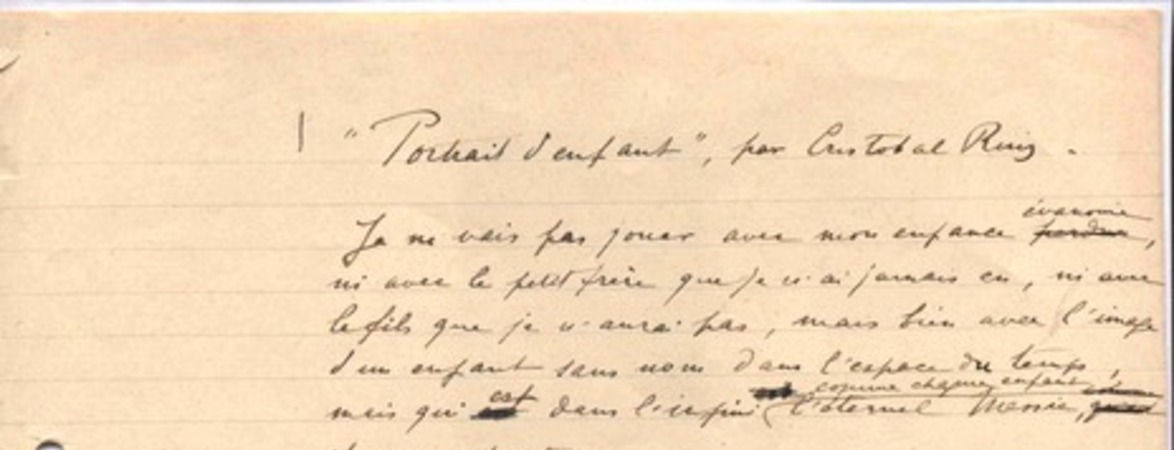 "Portrait d'enfant", par Cristobal Ruiz.
Je ne vais pas jouer avec mon enfance évanouie perdue,
ni avec le petit frère que je n'ai jamais eu, ni avec
le fils que je n'aurai pas, mais bien avec l'image
d'un enfant sans nom dans l'espace du temps,
mais qui est dans l'infini (comme chaque enfant) l'éternel Messie,